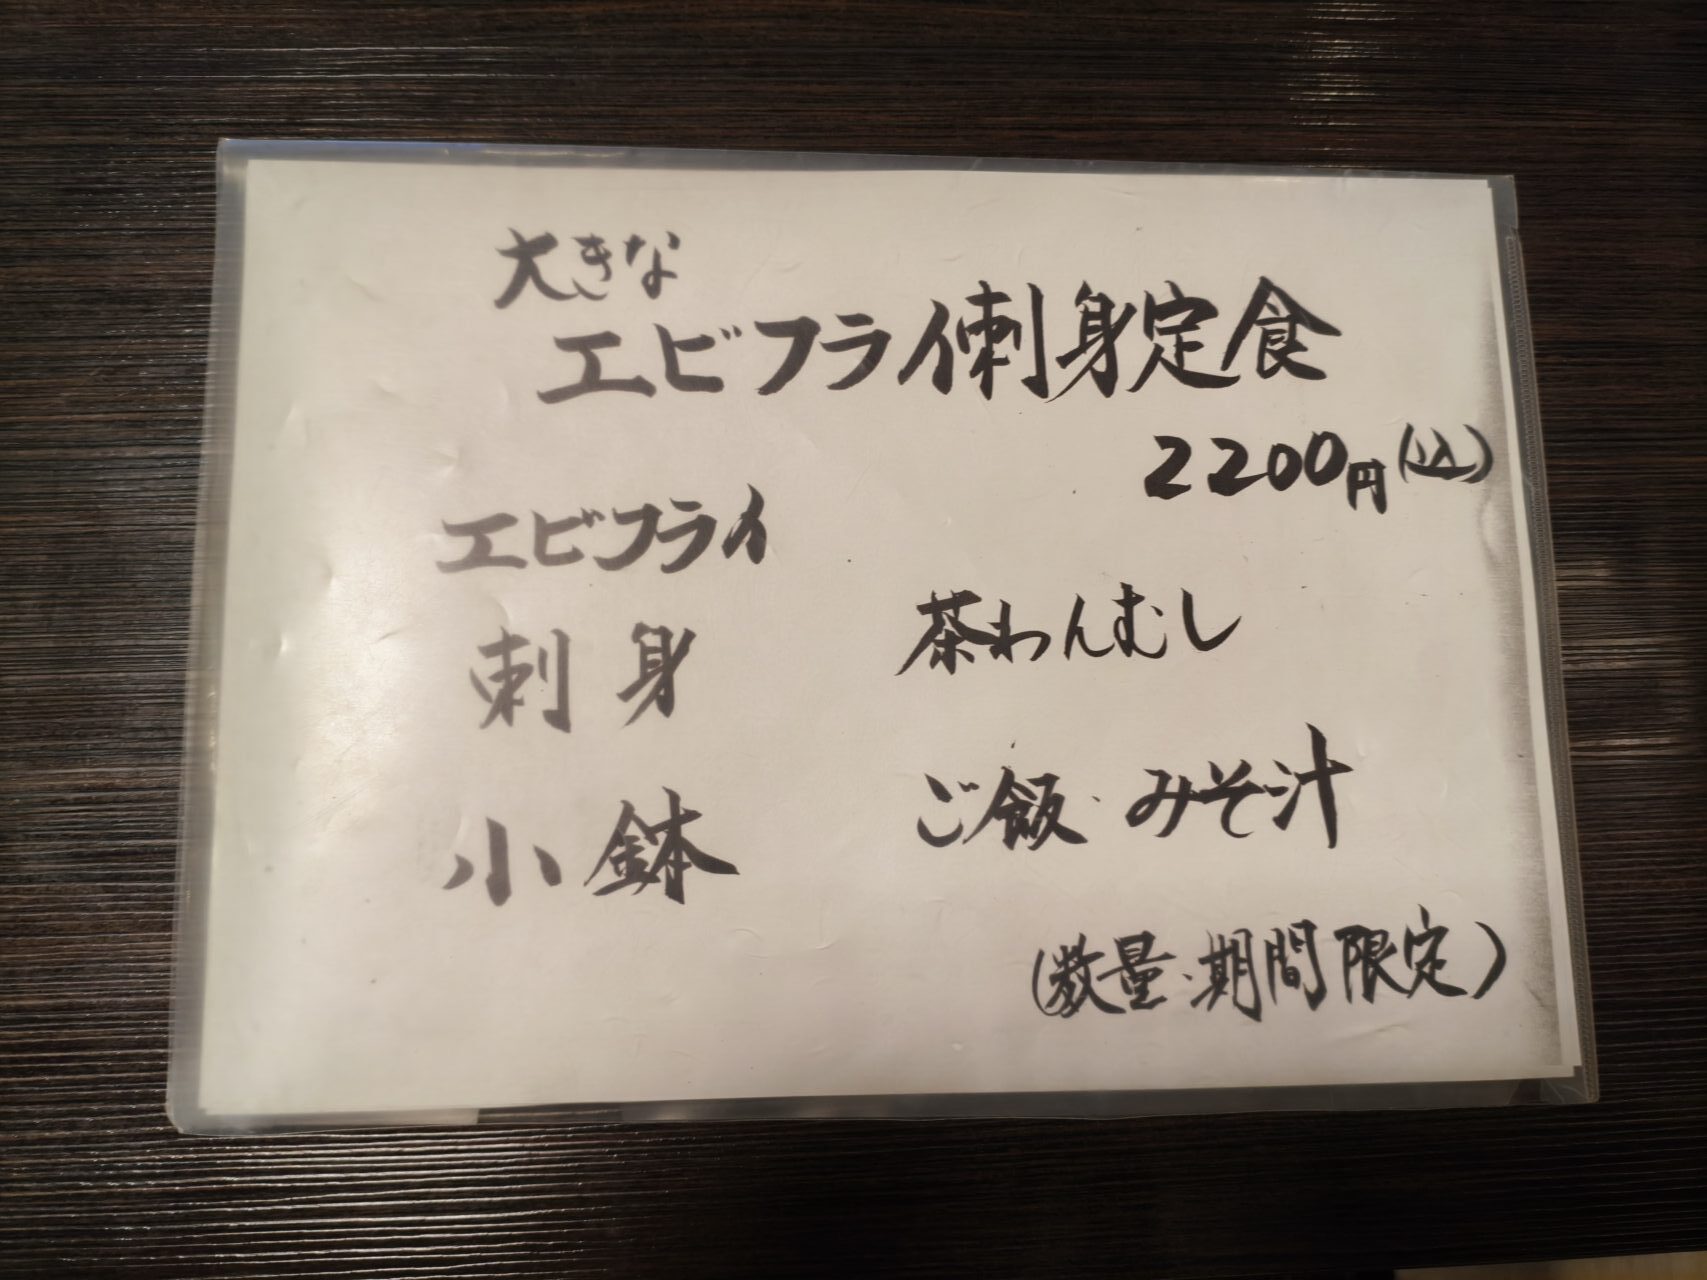 大きな
エビフライ刺身定食
2200円(込)
エビフライ
刺身
茶わんむし
小鉢
ご飯・みそ汁
(数量・期間限定)